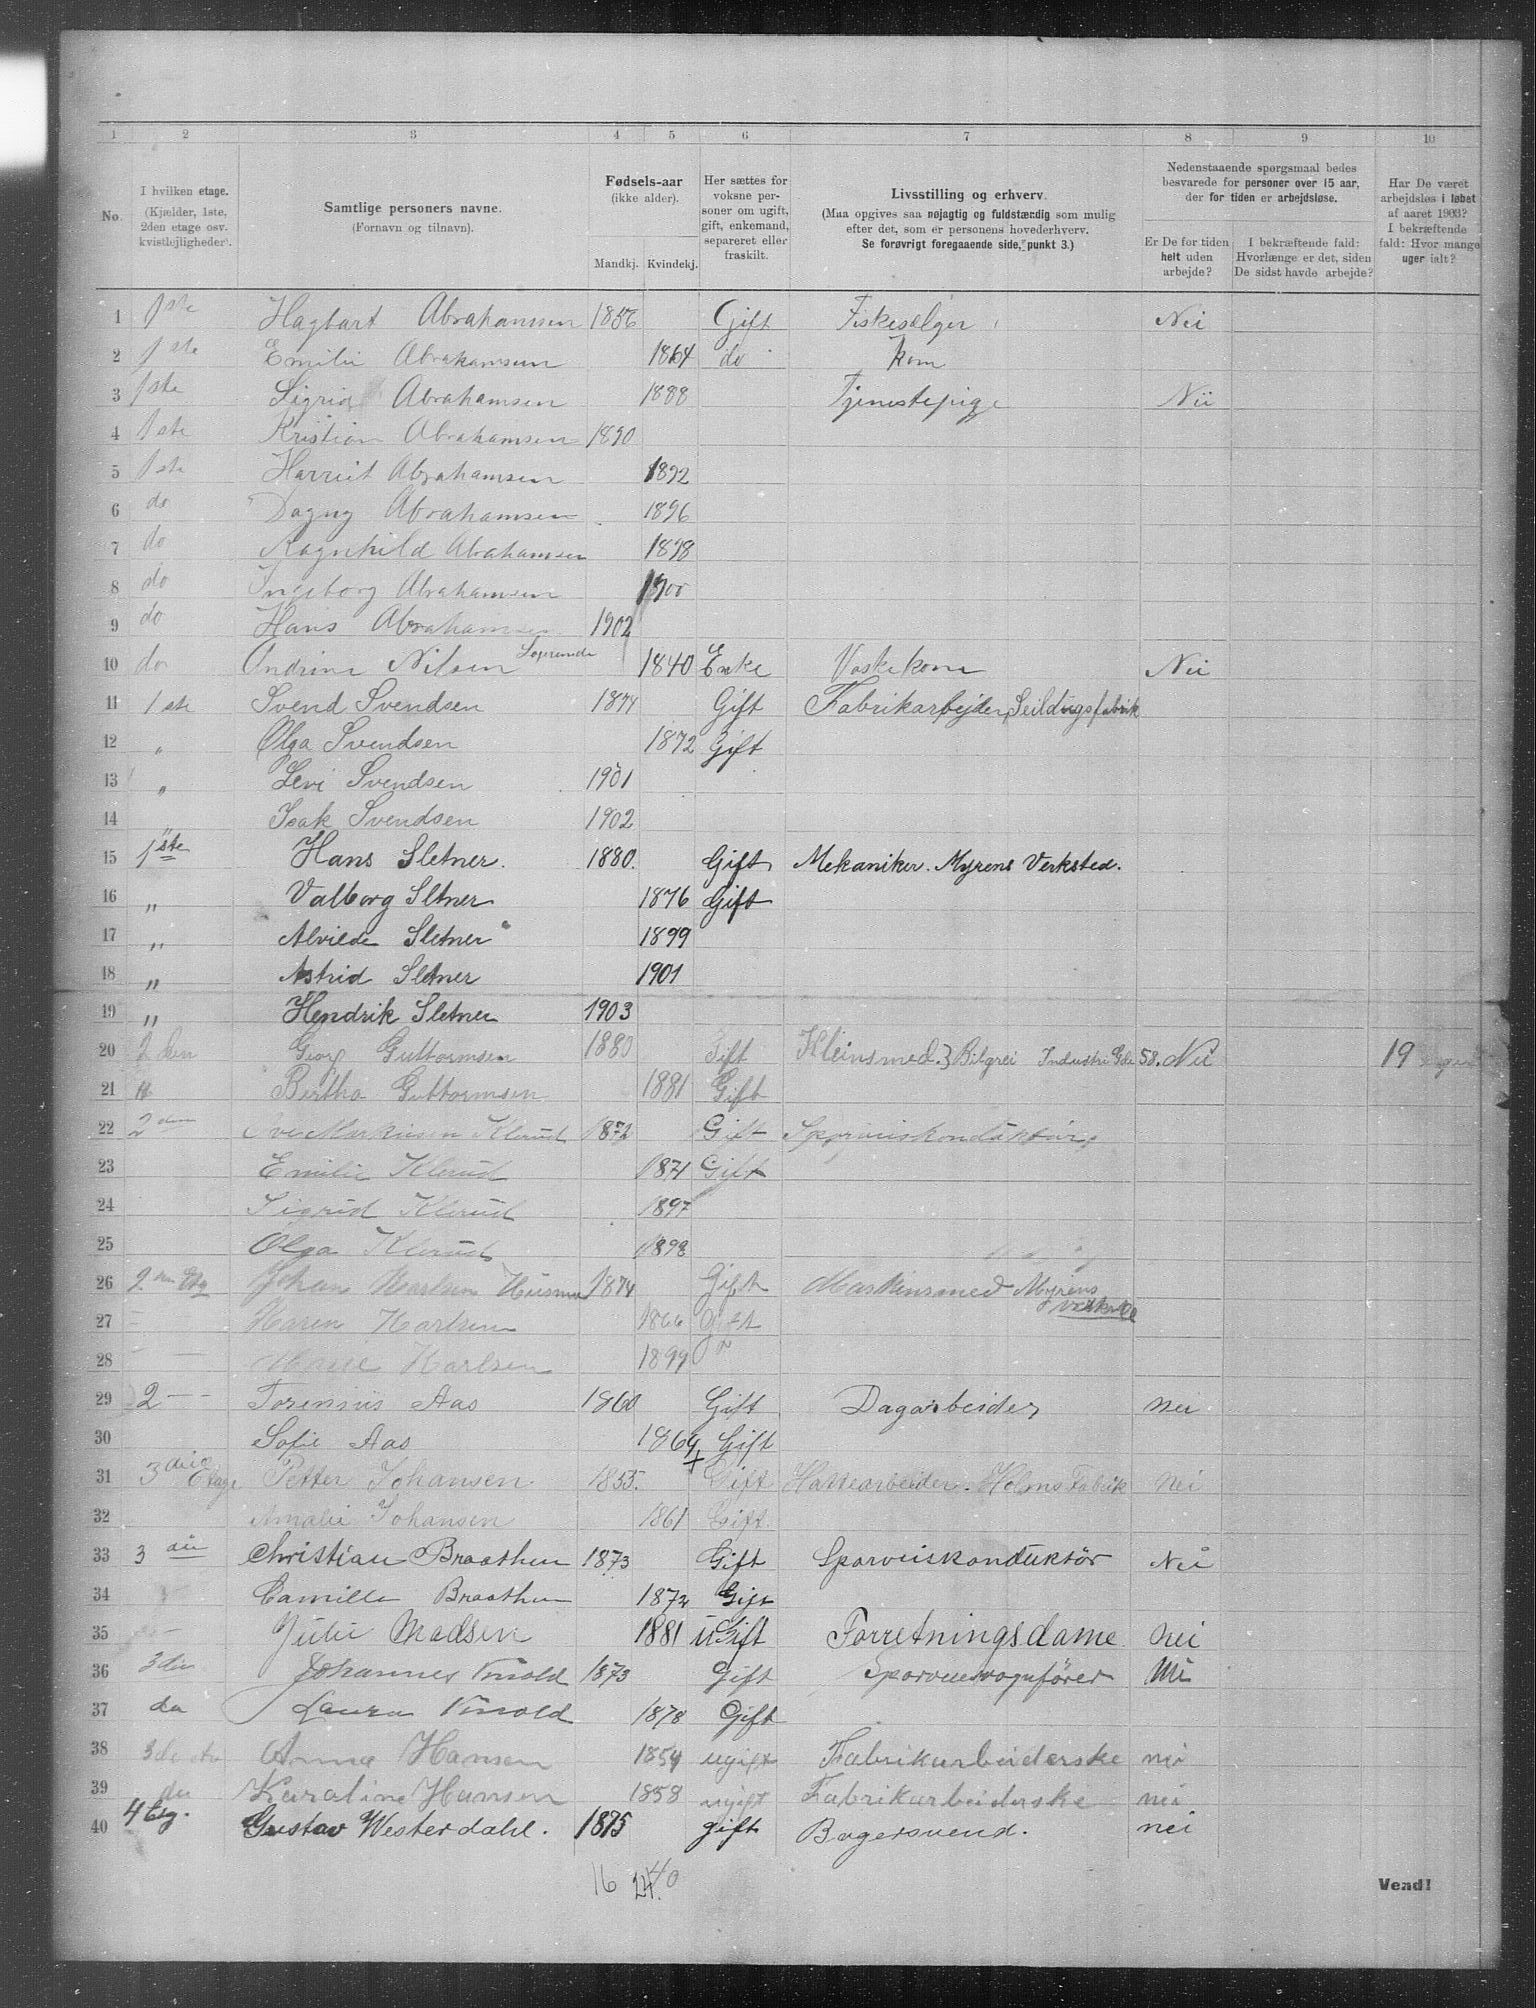 1 2 3 4 5 6 7 8 9 10
No.
I hvilken etage. (Kjælder, 1ste, 2den etage osv. kvistlejligheder).
Samtlige personers navne. (Fornavn og tilnavn).
Fødsels-aar (ikke alder).
Mandkj. Kvindekj.
Her sættes for voksne personer om ugift, gift, enkemand, separeret eller fraskilt.
Livsstilling og erhverv.
(Maa opgives saa nøjagtig og fuldstændig som mulig efter det, som er personens hovederhverv.
Se forøvrigt foregaaende side, punkt 3.)
Nedenstaaende spørgsmaal bedes besvarede for personer over 15 aar, der for tiden er arbejdsløse.
Er De for tiden helt uden arbejde?
I bekræftende fald: Hvorlænge er det, siden De sidst havde arbejde?
Har De været arbejdsløs i løbet af aaret 1903? I bekræftende fald: Hvor mange uger ialt?
1 1ste Hagbart Abrahamsen 1856 Gift Fiskesælger Nei
2 1ste Emilie Abrahamsen 1864 do kom
3 1ste Sigrid Abrahamsen 1888 Tjenestepige Nei
4 1ste Kristian Abrahamsen 1890
5 1ste Harriet Abrahamsen 1892
6 do Dagny Abrahamsen 1896
7 do Ragnhild Abrahamsen 1898
8 do Ingeborg Abrahamsen 1900
9 do Hans Abrahamsen 1902
10 do Andrine Nilsen 1840 Enke Vaskekone Nei
11 1ste Svend Svendsen 1874 Gift Fabrikarbejder, Seildugsfabrik
12 " Olga Svendsen 1872 Gift
13 " Levi Svendsen 1901
14 Isak Svendsen 1902
15 1ste Hans Sletner. 1880. Gift Mekaniker. Myrens Verksted.
16 " Valborg Sletner 1876 Gift
17 " Alvilde Sletner 1899
18 " Astrid Sletner 1901
19 " Hendrik Sletner 1903
20 2den Georg Guttormsen 1880 Gift Kleinsmed. Industri Gde 58. Nei 19
21 " Bertha Guttormsen 1881 Gift
22 2den Klerud 1872 Gift Sporveiskonduktør
23 Emilie Klerud 1871 Gift
24 Sigrid Klerud 1897
25 Olga Klerud 1898
26 2den Etg Johan Karlsen 1874 Gift Maskinsmed Myrens
27 Karen Karlsen 1866 Gift
28 Karlsen 1899
29 2 — Torinius Aas 1860 Gift Dagarbeider Nei
30 Sofie Aas 1864 Gift
31 3die Etage Petter Johansen 1855. Gift Hattearbeider. Holms Fabrik Nei
32 Amalie Johansen 1861 Gift.
33 3die Christian Braathen 1873 Gift Sporveiskonduktør Nei
34 Camilla Braathen 1872 Gift
35 Julie Madsen 1881 ugift Forretningsdame Nei
36 3die Johannes 1873 Gift Sporveisvognfører Nei
37 do Laura 1878 Gift
38 3die Anna Hansen 1854 ugift Fabrikarbeiderske nei
39 do Karoline Hansen 1858 ugift Fabrikarbeiderske nei
40 4 Etg. Gustav Westerdahl. 1875 gift Bagersvend. nei
16 24 40
Vend!